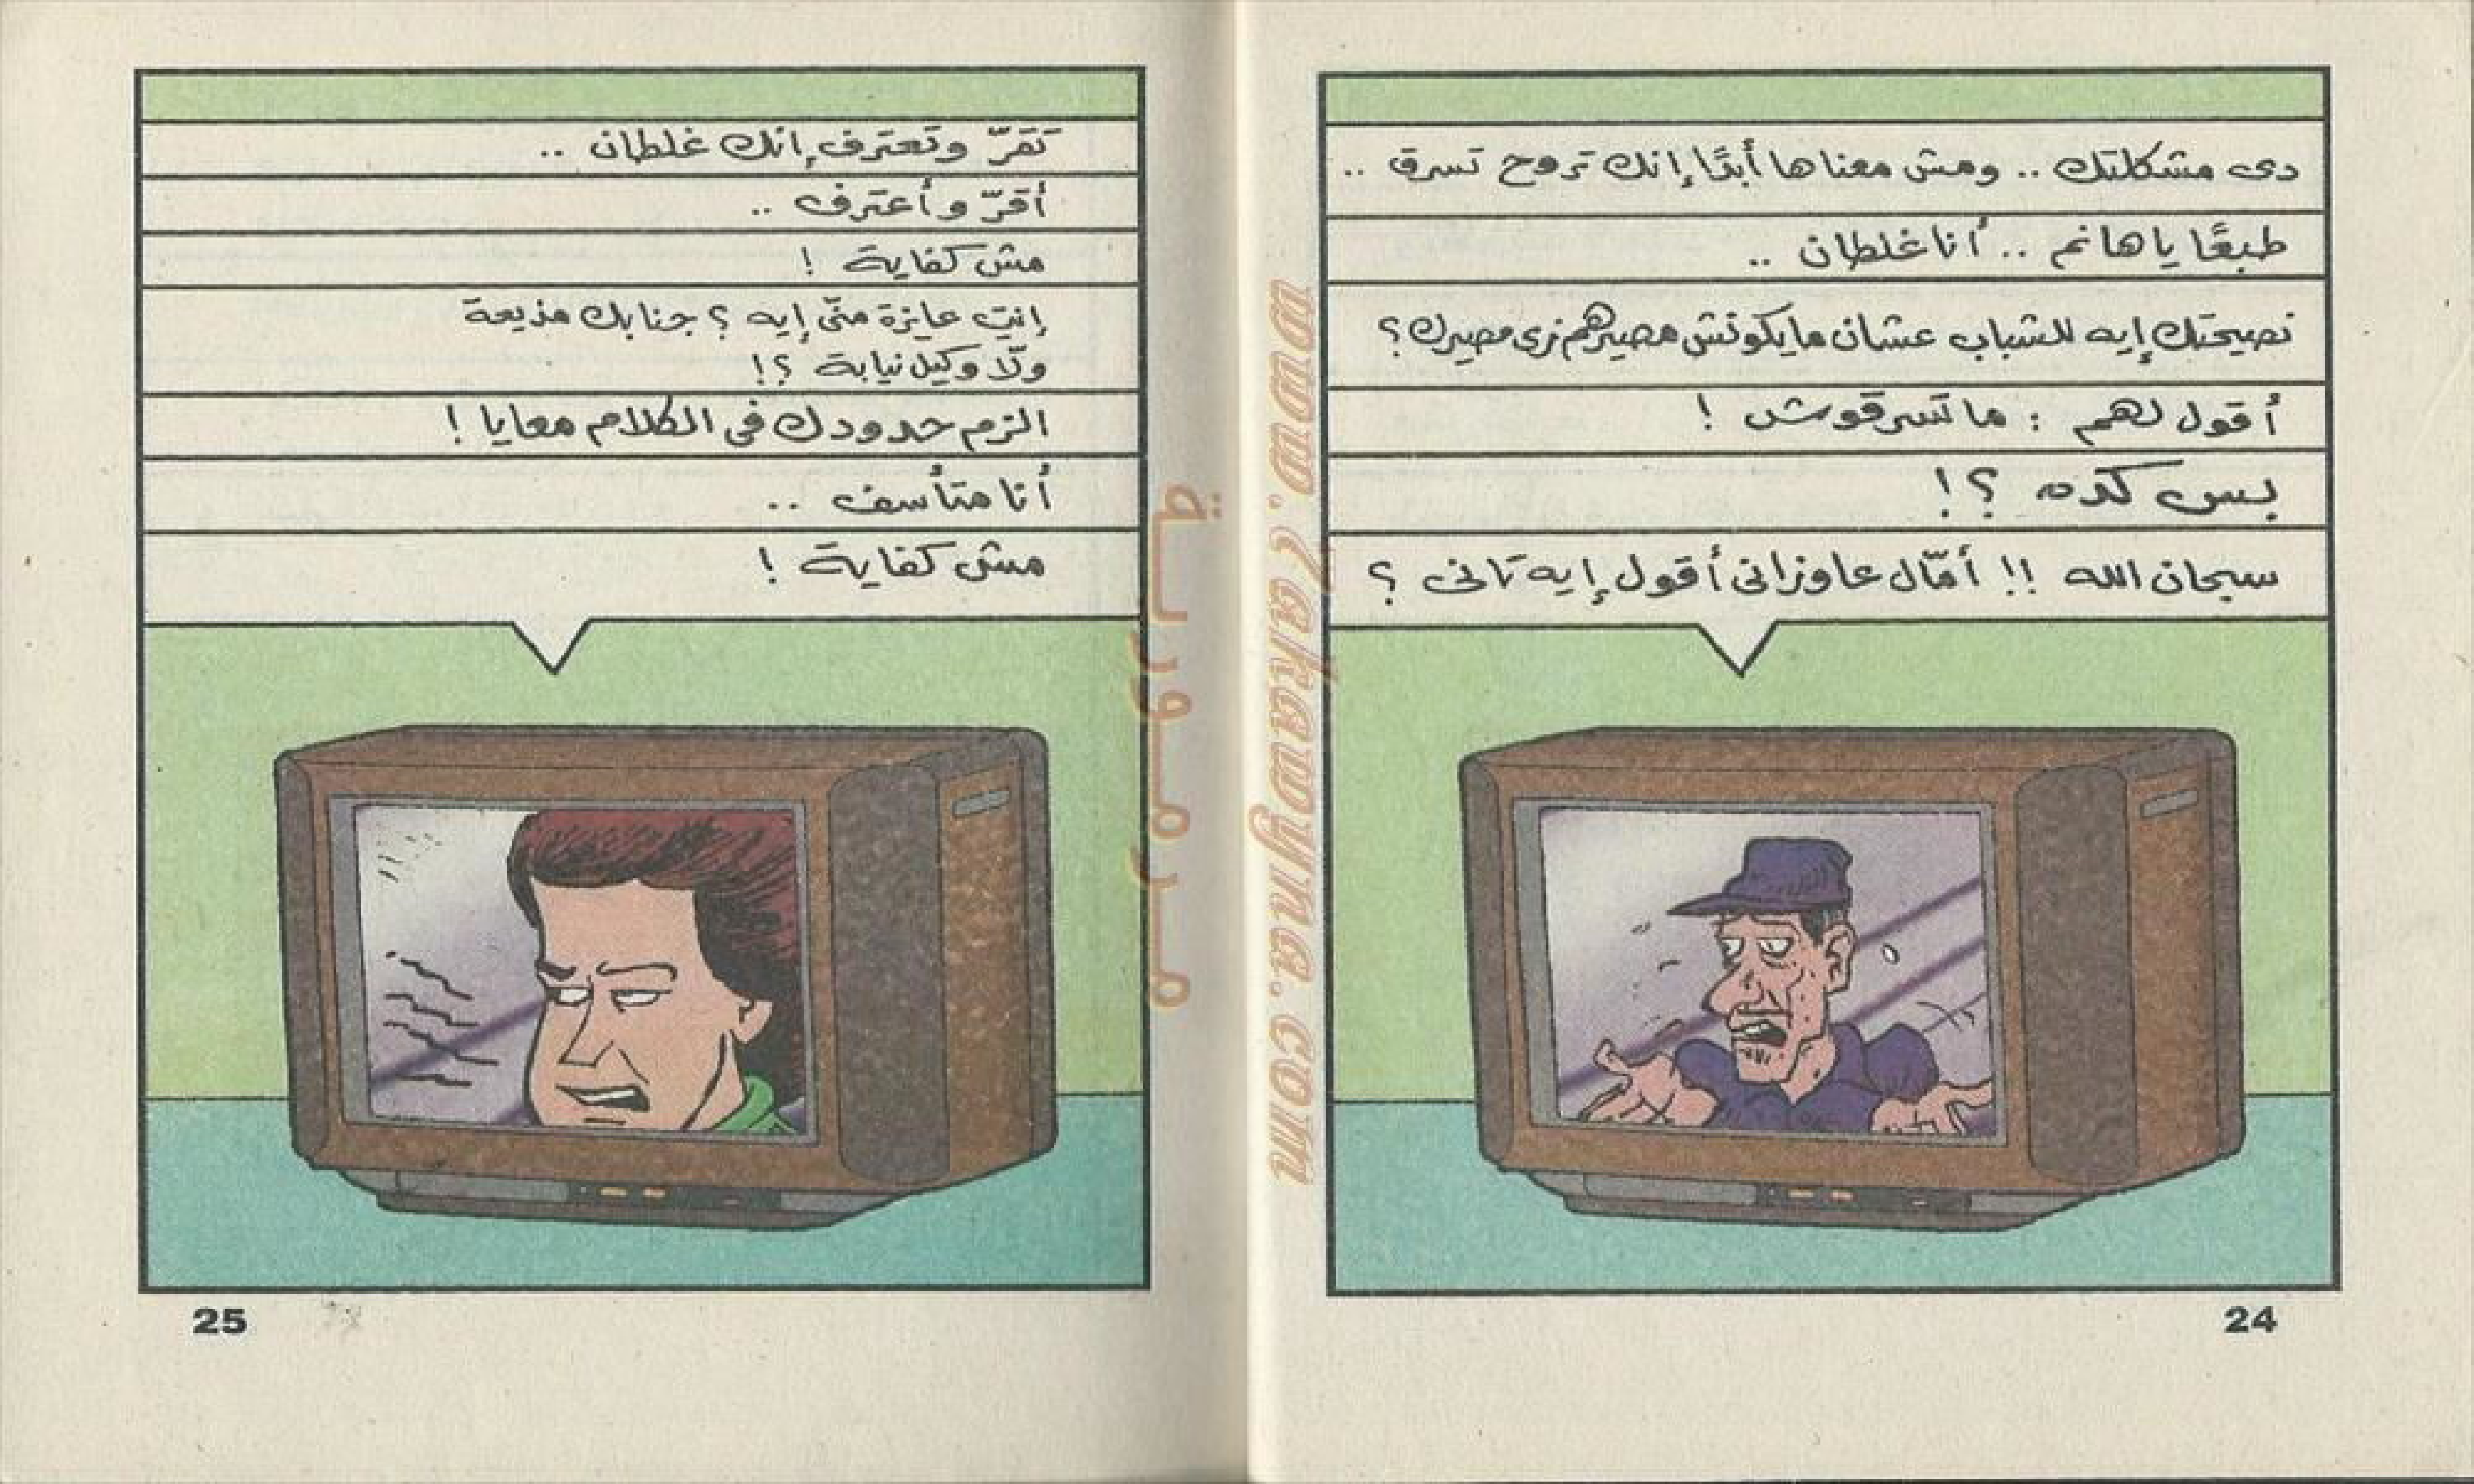 دى مشكلتك .. ومش معناها أبدًا إنك تروح تسرق ..
طبعًا يا هانم .. أنا غلطان ..
نصيحتك إيه للشباب عشان مايكونش مصيرهم زى مصيرك ؟
أقول لهم : ما تسرقوش !
بس كده ؟!
سبحان الله !! أمّال عاوزانى أقول إيه تانى ؟
24
تقرّ وتعترف إنك غلطان ..
أقرّ وأعترف ..
مش كفاية !
إنتِ عايزة منّى إيه ؟ جنابك مذيعة
ولّا وكيل نيابة ؟!
الزم حدودك فى الكلام معايا !
أنا متأسف ..
مش كفاية !
25
مرمورية
www.Takawyna.com